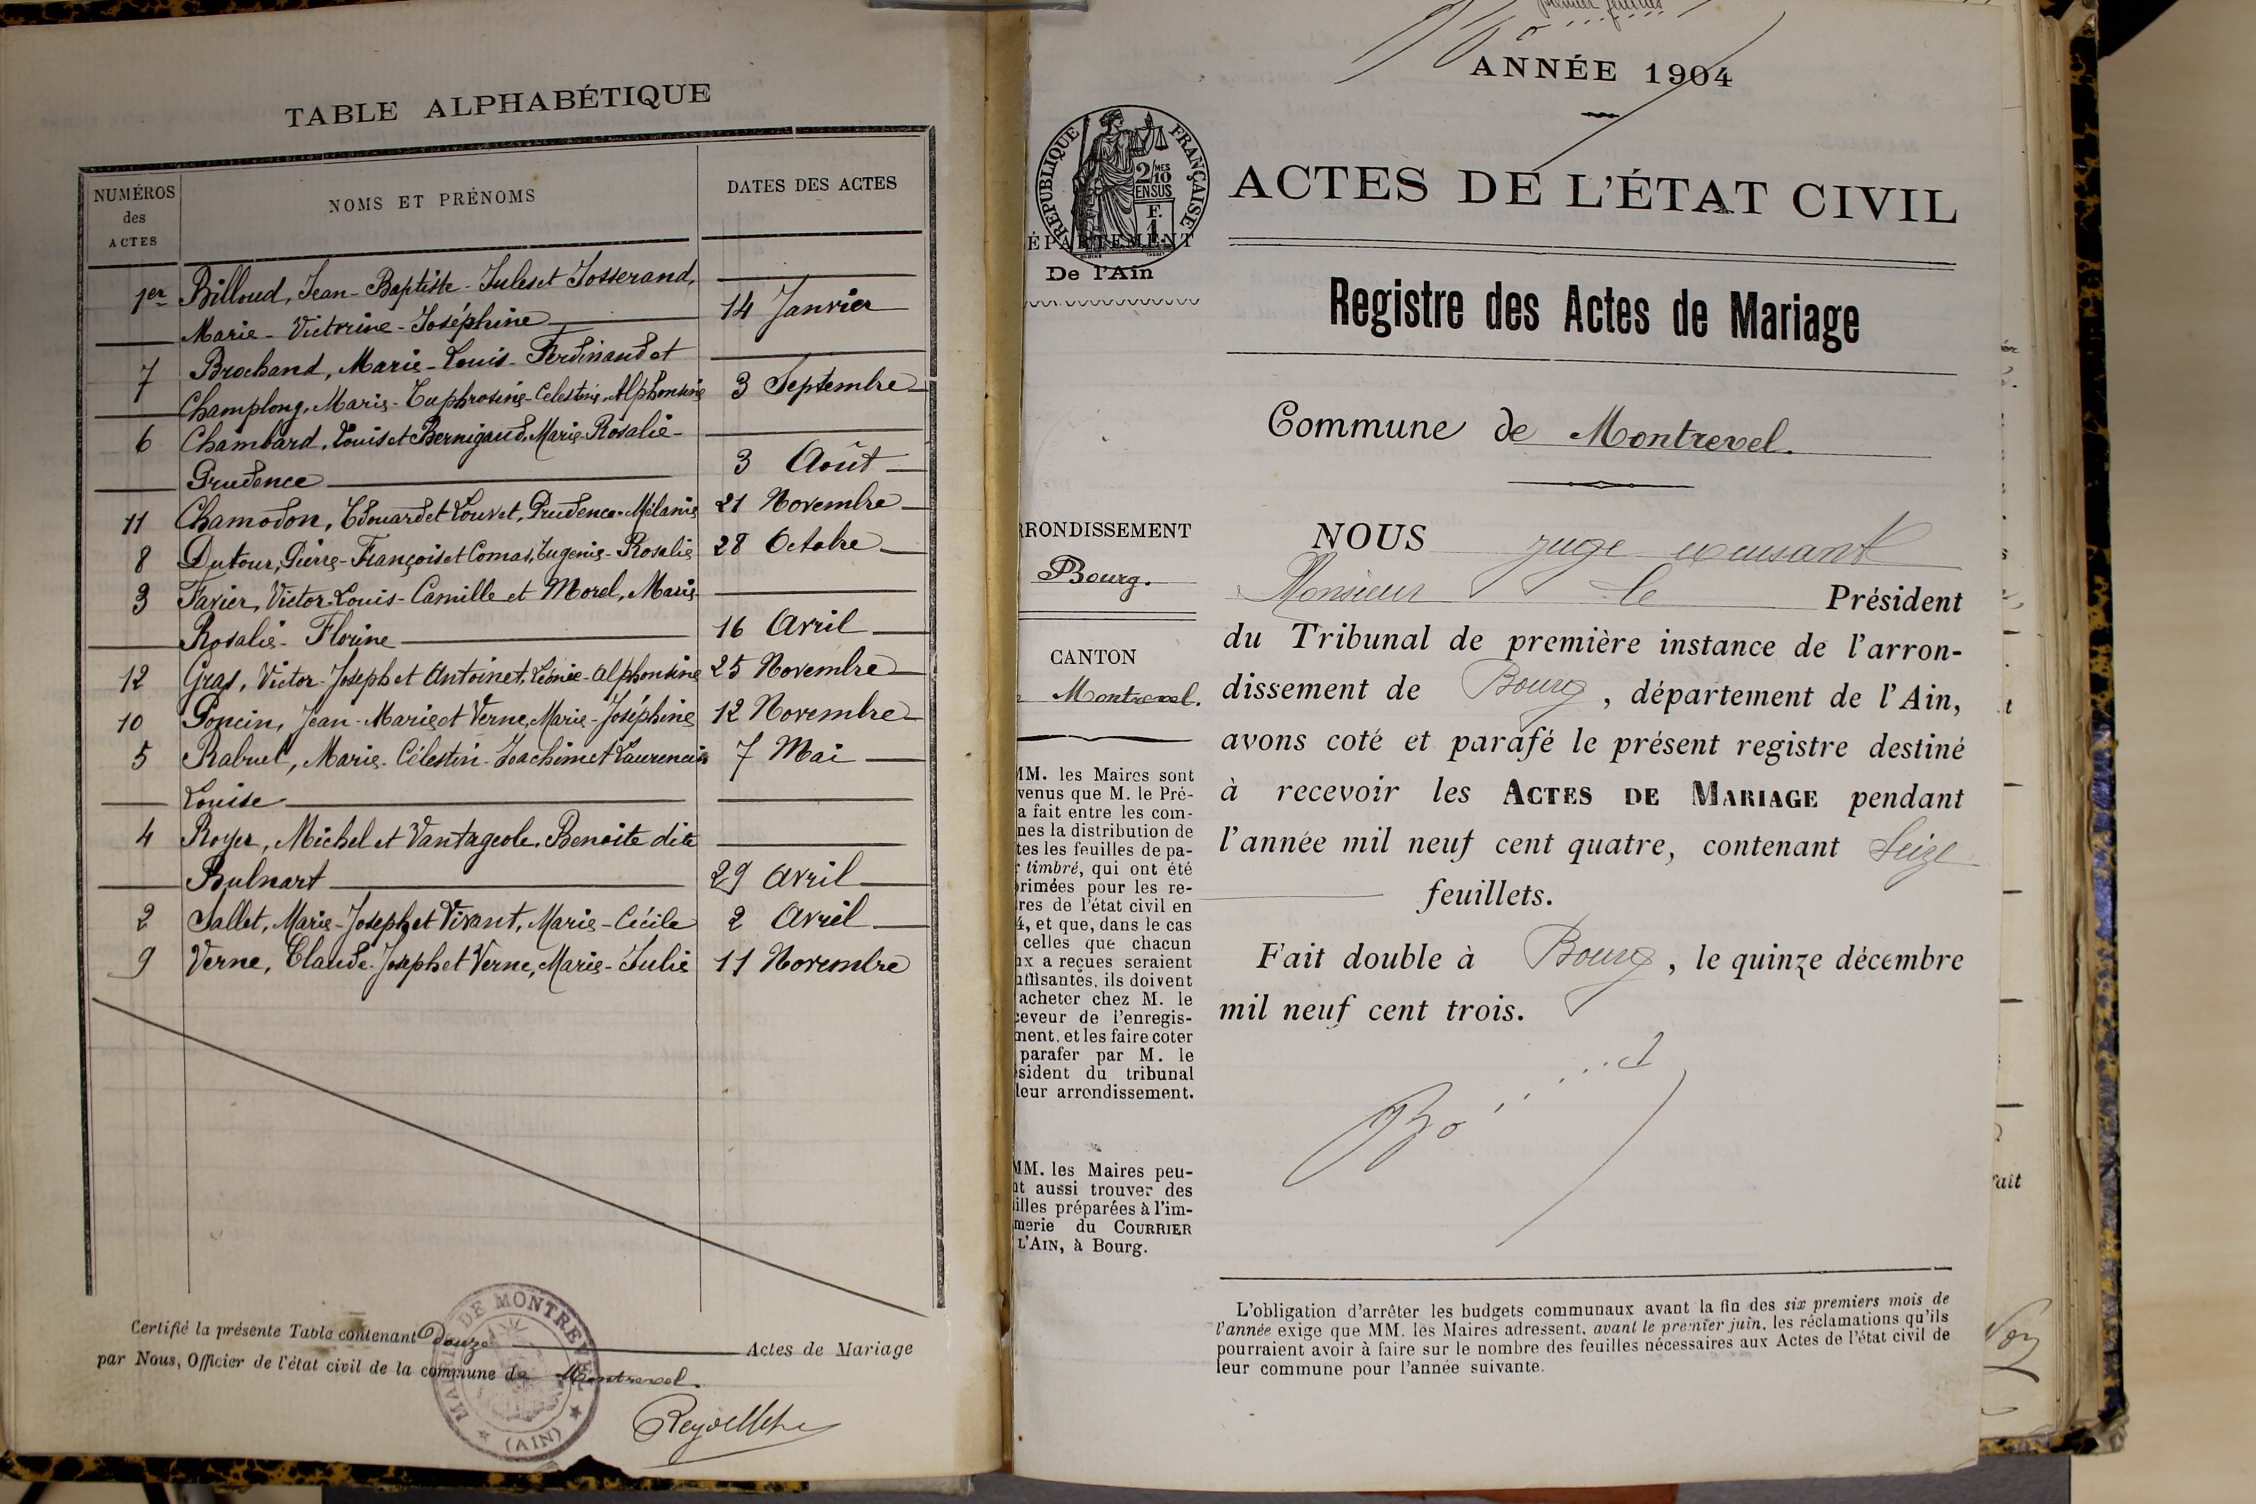 TABLE ALPHABÉTIQUE
NUMÉROS des ACTES
NOMS ET PRÉNOMS
DATES DES ACTES
1er Billoud, Jean-Baptiste-Jules et Josserand,
Marie-Victorine-Joséphine 14 Janvier
7 Brochand, Marie-Louis-Ferdinand et
Champlong, Marie-Euphrosine-Celestine-Alphonsine 3 Septembre
6 Chambard, Louis et Bernigaud, Marie-Rosalie-
Prudence 3 Août
11 Chamodon, Edouard et Louvet, Prudence-Mélanie 21 Novembre
8 Dutour, Pierre-François et Comas, Eugenie-Rosalie 28 Octobre
3 Favier, Victor-Louis-Camille et Morel, Marie
Rosalie-Florine 16 Avril
12 Gras, Victor-Joseph et Antoinet, Léonie-Alphonsine 25 Novembre
10 Poncin, Jean-Marie et Verne, Marie-Joséphine 12 Novembre
5 Rabuel, Marie-Célestin-Joachim et Laurencin 7 Mai
Louise
4 Royer, Michel et Vantageole, Benoite dite
Bulnart 29 Avril
2 Sallet, Marie-Joseph et Vivant, Marie-Cécile 2 Avril
9 Verne, Claude-Joseph et Verne, Marie-Julie 11 Novembre
Certifié la présente Table contenant Douze Actes de Mariage
par Nous, Officier de l'état civil de la commune de Montrevel.
MAIRIE DE MONTREVEL
(AIN)
premier feuillet
ANNÉE 1904
RÉPUBLIQUE FRANÇAISE
2/10 MES
EN SUS
F.
1
ÉPARTEMENT
De l'Ain
ACTES DE L'ÉTAT CIVIL
Registre des Actes de Mariage
Commune de Montrevel.
RRONDISSEMENT
Bourg.
CANTON
Montrevel.
MM. les Maires sont
venus que M. le Pré-
a fait entre les com-
nes la distribution de
tes les feuilles de pa-
r timbré, qui ont été
rimées pour les re-
res de l'état civil en
4, et que, dans le cas
celles que chacun
ux a reçues seraient
uffisantes, ils doivent
acheter chez M. le
ceveur de l'enregis-
ment, et les faire coter
parafer par M. le
sident du tribunal
leur arrondissement.
MM. les Maires peu-
nt aussi trouver des
illes préparées à l'im-
merie du COURRIER
L'AIN, à Bourg.
NOUS juge excusant
Monsieur le Président
du Tribunal de première instance de l'arron-
dissement de Bourg, département de l'Ain,
avons coté et parafé le présent registre destiné
à recevoir les ACTES DE MARIAGE pendant
l'année mil neuf cent quatre, contenant Seize
feuillets.
Fait double à Bourg, le quinze décembre
mil neuf cent trois.
L'obligation d'arrêter les budgets communaux avant la fin des six premiers mois de
l'année exige que MM. les Maires adressent, avant le premier juin, les réclamations qu'ils
pourraient avoir à faire sur le nombre des feuilles nécessaires aux Actes de l'état civil de
leur commune pour l'année suivante.